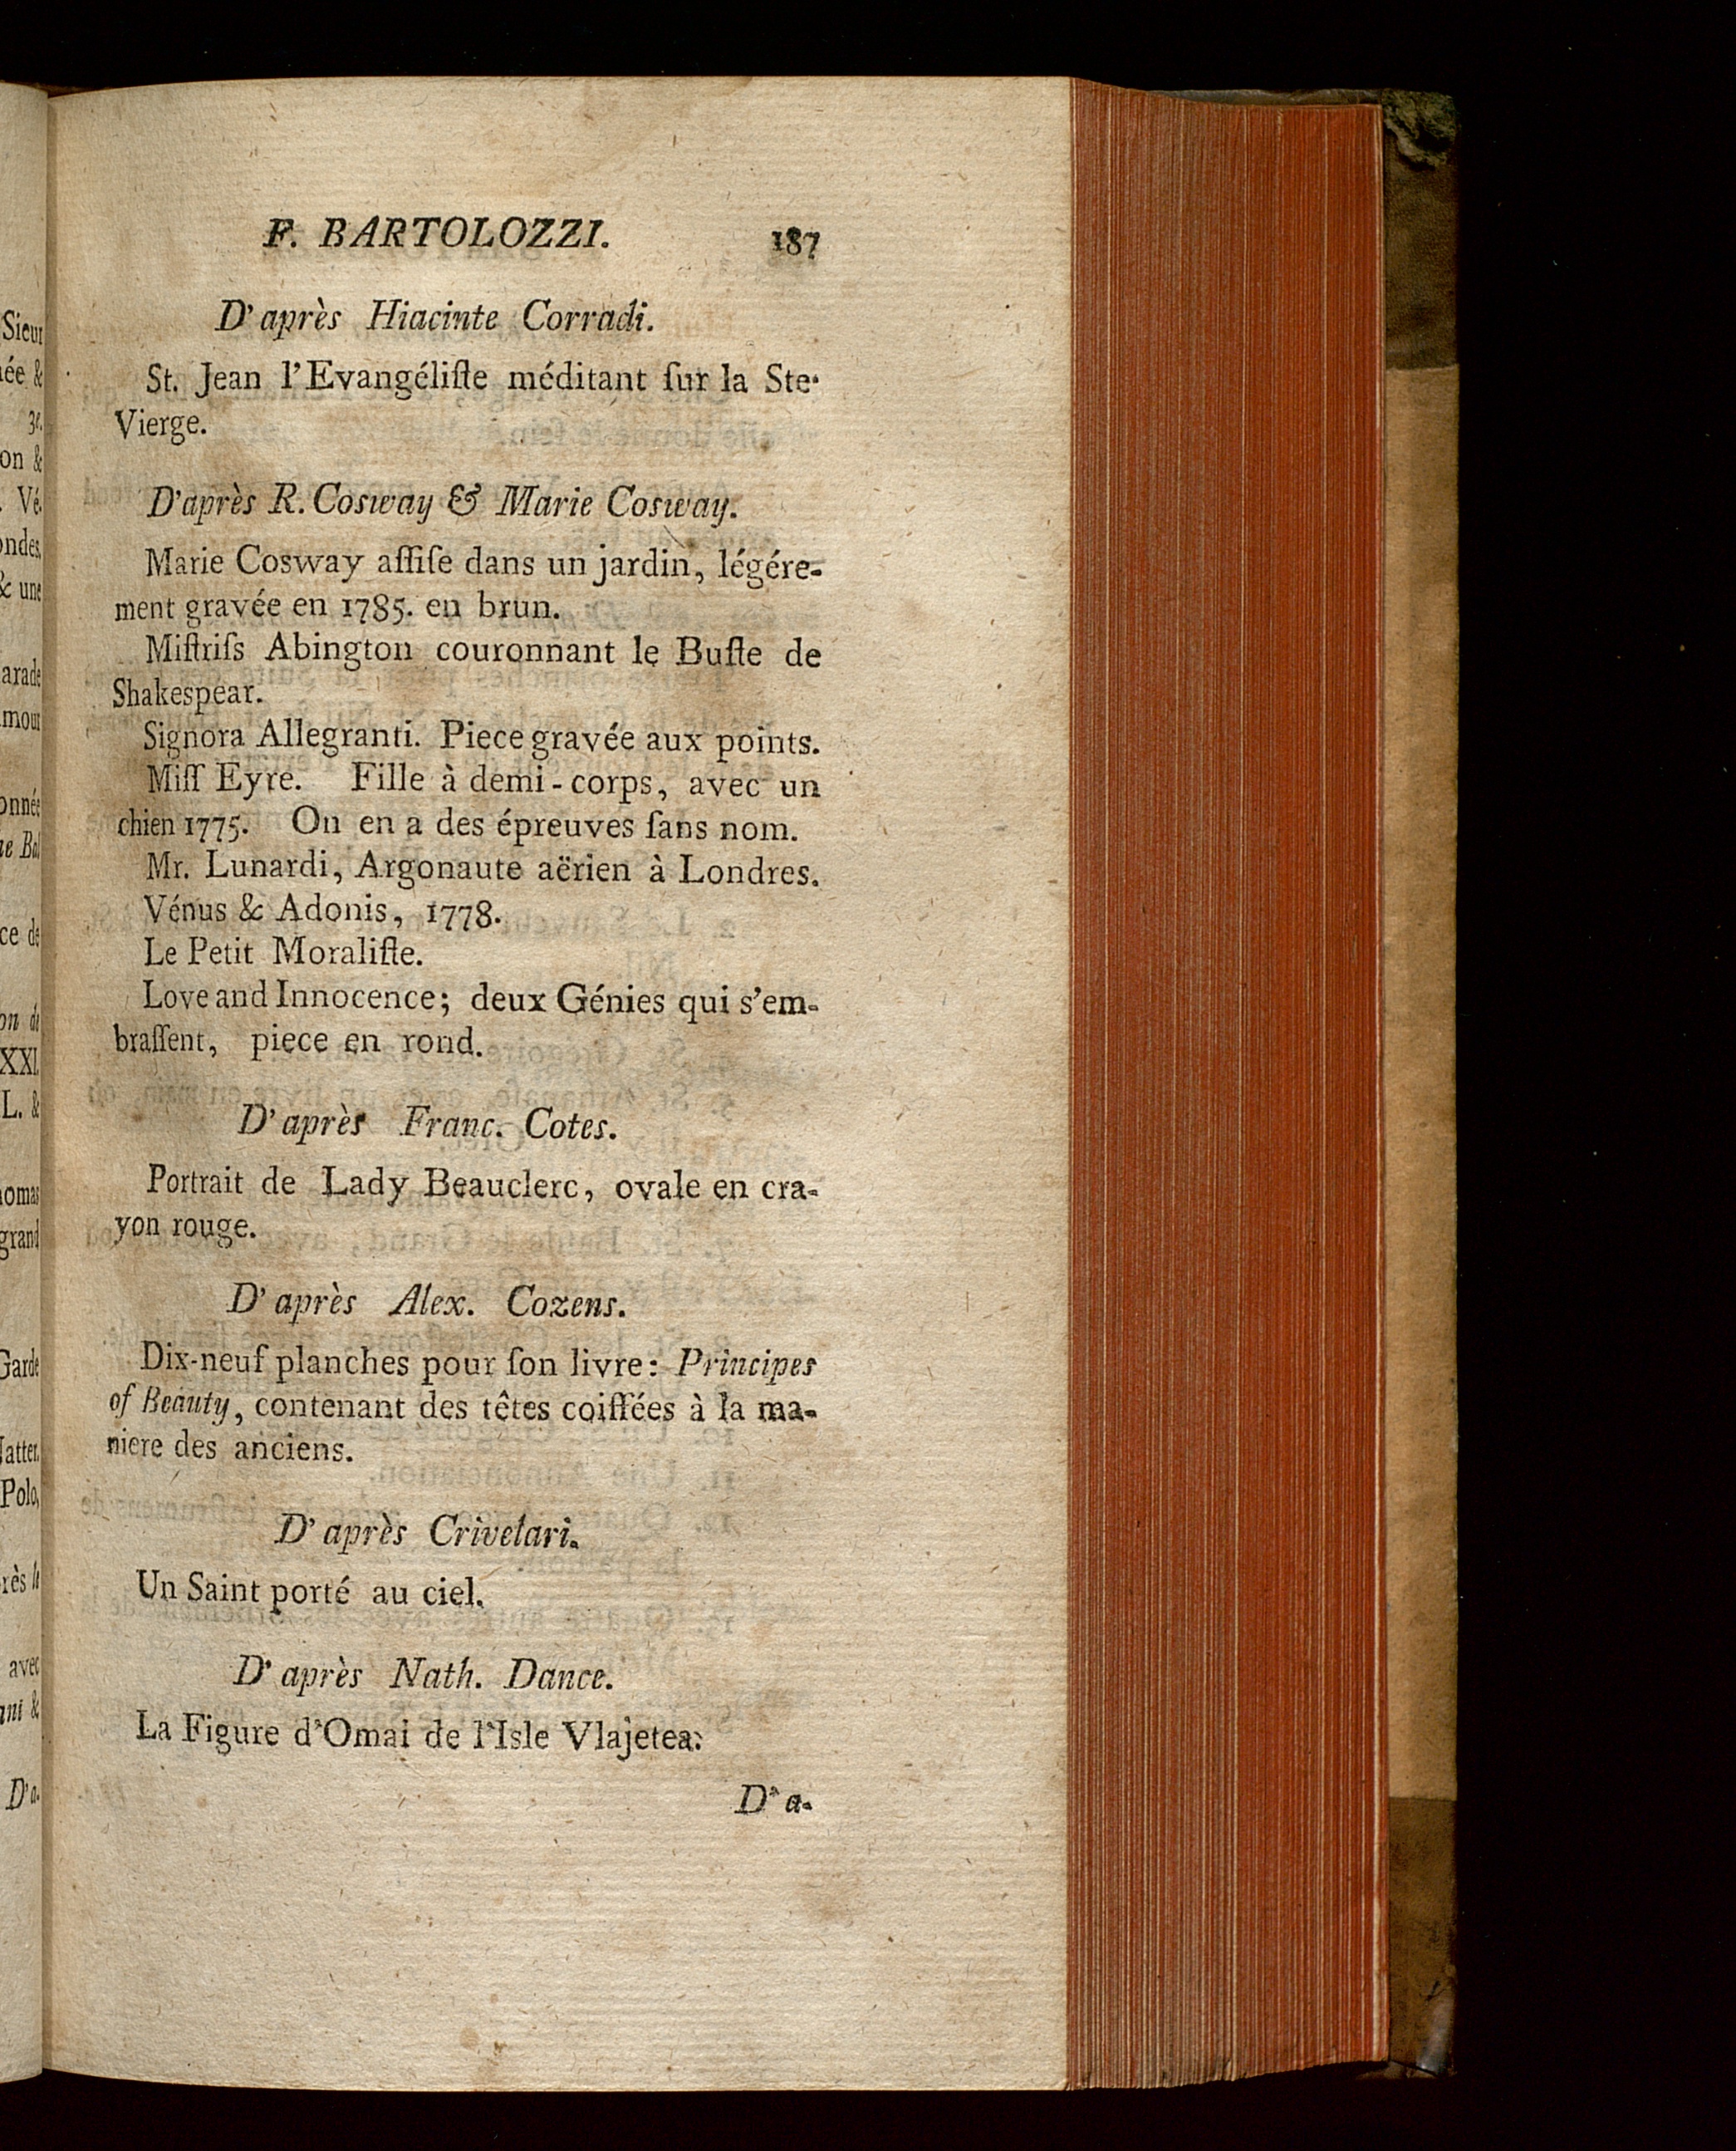 F. BARTOLOZZI. 187
D'après Hiacinte Corradi.
St. Jean l'Evangéliſte méditant ſur la Ste.
Vierge.
D'après R. Cosway & Marie Cosway.
Marie Cosway aſſiſe dans un jardin, légére-
ment gravée en 1785. en brun.
Miſtriſs Abington couronnant le Buſte de
Shakespear.
Signora Allegranti. Piece gravée aux points.
Miſſ Eyre. Fille à demi-corps, avec un
chien 1775. On en a des épreuves ſans nom.
Mr. Lunardi, Argonaute aërien à Londres.
Vénus & Adonis, 1778.
Le Petit Moraliſte.
Love and Innocence; deux Génies qui s'em-
braſſent, piece en rond.
D'après Franc. Cotes.
Portrait de Lady Beauclerc, ovale en cra-
yon rouge.
D'après Alex. Cozens.
Dix-neuf planches pour ſon livre: Principes
of Beauty, contenant des têtes coiffées à la ma-
niere des anciens.
D'après Crivelari.
Un Saint porté au ciel.
D'après Nath. Dance.
La Figure d'Omai de l'Isle Vlajetea.
D'a-